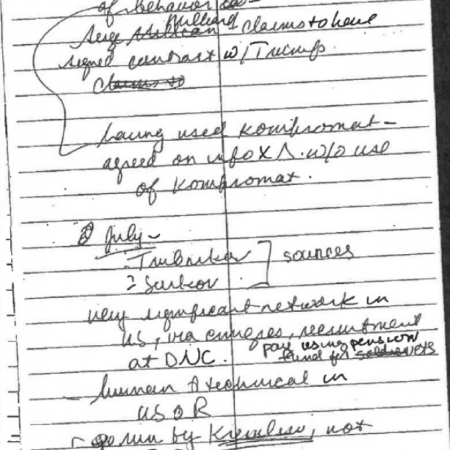 of behavior
Serge Millian claims to have
signed contract w/ Trump.
Claims to
having used kompromat -
agreed on info X Δ. w/o use
of kompromat.
July -
- Trubnikov ] sources
- Surkov
very significant network in
US, via emigres, recruitment
at DNC. pay using pension
fund for soldiers
- human & technical in
US & R
- go run by Kremlin, not